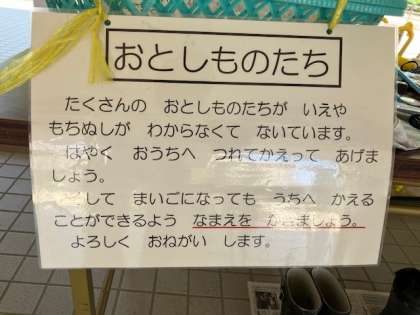 おとしものたち
たくさんの おとしものたちが いえや
もちぬしが わからなくて ないています。
はやく おうちへ つれてかえって あげま
しょう。
して まいごになっても うちへ かえる
ことができるよう なまえを かきましょう。
よろしく おねがい します。